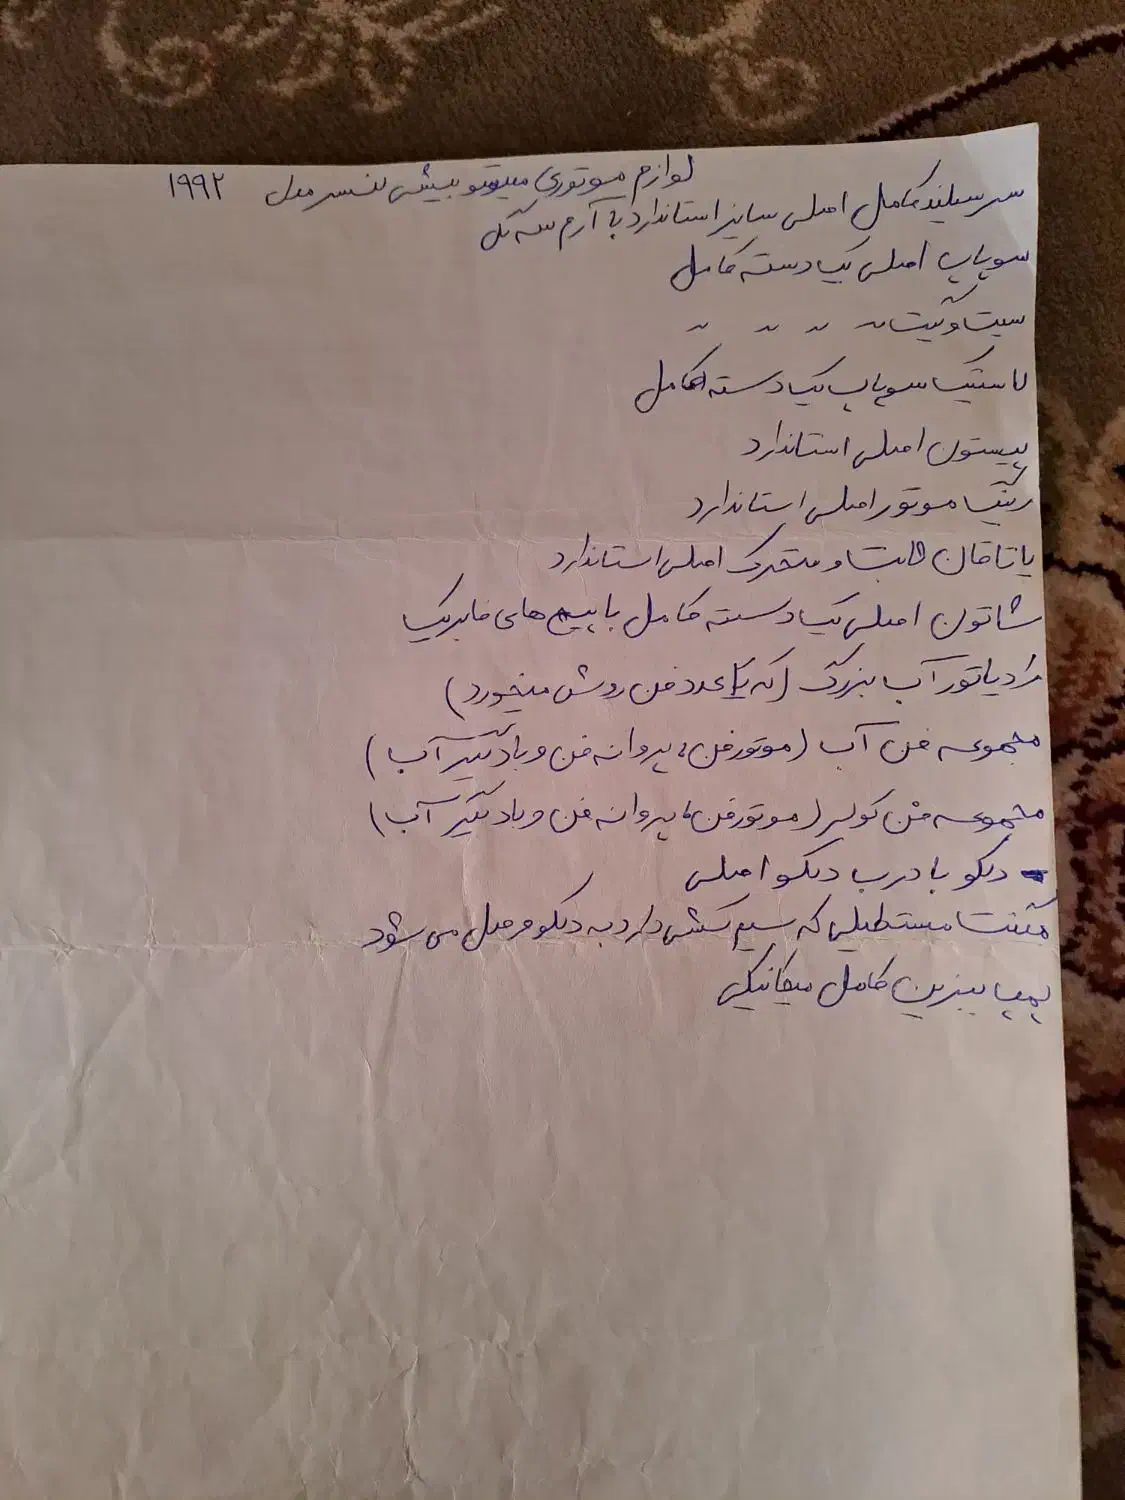 لوازم موتوری میتسوبیشی لنسر مدل ۱۹۹۲
سرسیلندر کامل اصلی سایز استاندارد با آرم سه گل
سوپاپ اصلی یک دسته کامل
سیت و گیت 〃 〃 〃 〃
لاستیک سوپاپ یک دسته کامل
پیستون اصلی استاندارد
رینگ موتور اصلی استاندارد
یاتاقان ثابت و متحرک اصلی استاندارد
شاتون اصلی یک دسته کامل با پیچ های فابریک
رادیاتور آب بزرگ (که یک عدد فن روش میخورد)
مجموعه فن آب (موتور فن، پروانه فن و بادگیر آب)
مجموعه فن کولر (موتور فن، پروانه فن و بادگیر آب)
دلکو با درب دلکو اصلی
مستطیلی که سیم کشی دارد به دلکو وصل می شود
پمپ بنزین کامل مکانیکی